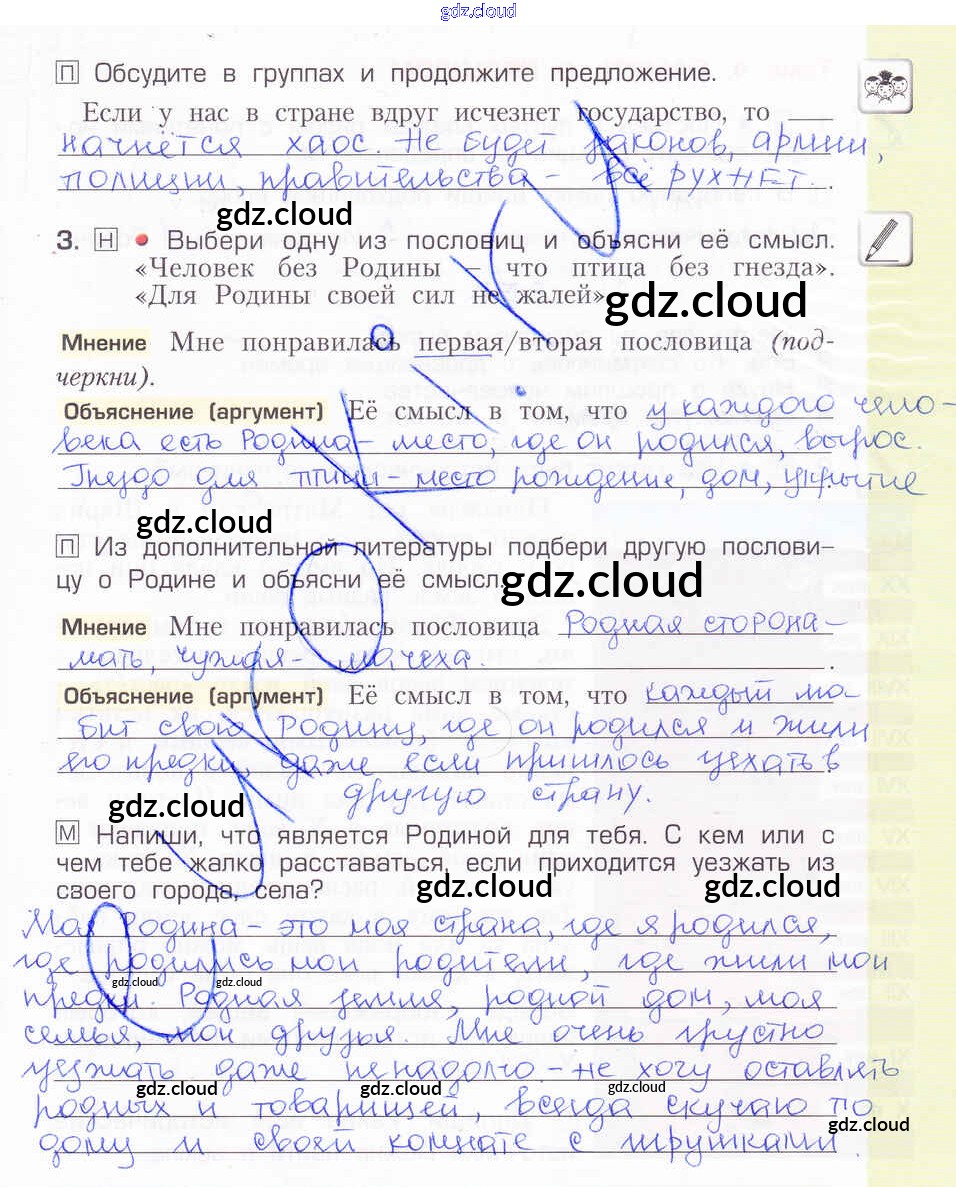 gdz.cloud
П Обсудите в группах и продолжите предложение.
Если у нас в стране вдруг исчезнет государство, то
начнётся хаос. Не будет законов, армии,
полиции, правительства – всё рухнет.
gdz.cloud
3. Н • Выбери одну из пословиц и объясни её смысл.
«Человек без Родины – что птица без гнезда».
«Для Родины своей сил не жалей».
gdz.cloud
Мнение Мне понравилась первая/вторая пословица (под-
черкни).
Объяснение (аргумент) Её смысл в том, что у каждого чело-
века есть Родина – место, где он родился, вырос.
Гнездо для птицы – место рождение, дом, укрытие.
gdz.cloud
П Из дополнительной литературы подбери другую послови-
цу о Родине и объясни её смысл.
gdz.cloud
Мнение Мне понравилась пословица Родная сторона –
мать, чужая – мачеха.
Объяснение (аргумент) Её смысл в том, что каждый лю-
бит свою Родину, где он родился и жили
его предки, даже если пришлось уехать в
другую страну.
gdz.cloud
М Напиши, что является Родиной для тебя. С кем или с
чем тебе жалко расставаться, если приходится уезжать из
своего города, села?
gdz.cloud gdz.cloud
Моя Родина – это моя страна, где я родился,
где родились мои родители, где жили мои
gdz.cloud gdz.cloud
предки. Родная земля, родной дом, моя
семья, мои друзья. Мне очень грустно
уезжать даже ненадолго – не хочу оставлять
gdz.cloud gdz.cloud gdz.cloud
родных и товарищей, всегда скучаю по
gdz.cloud
дому и своей комнате с игрушками.